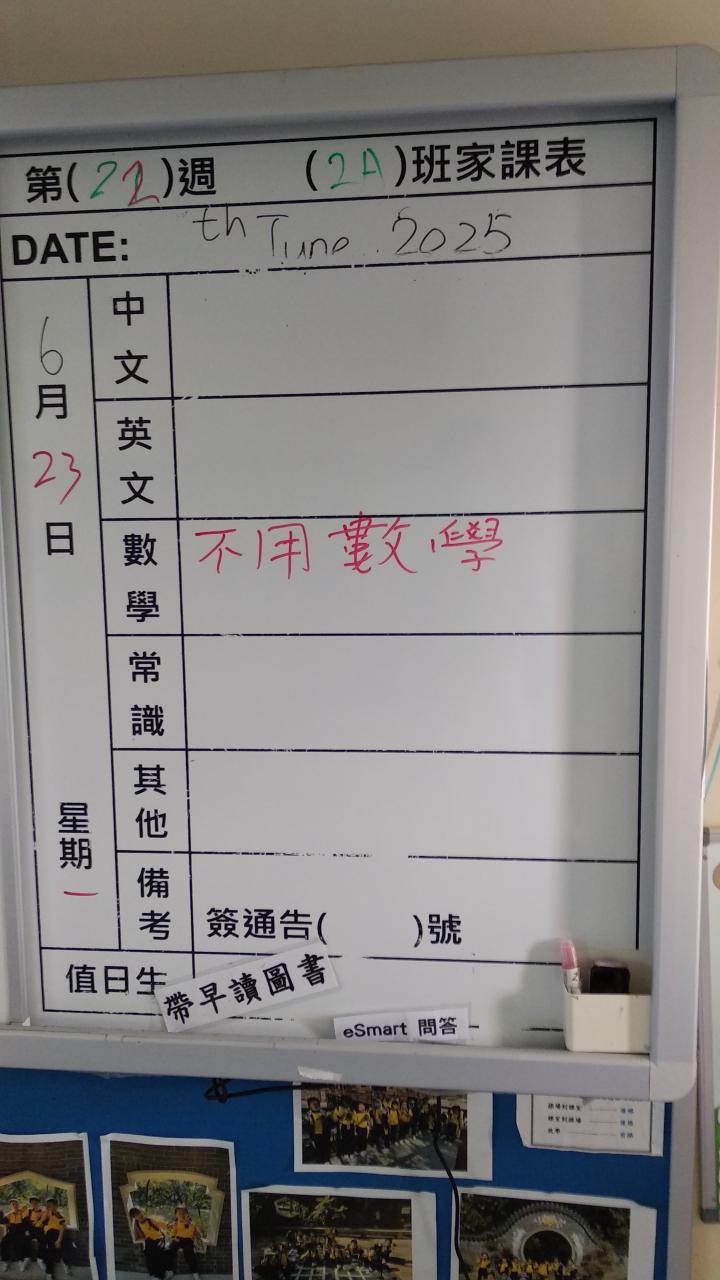 第(22)週 (2A)班家課表
DATE: th June 2025
6月23日
星期一
中文
英文
數學 不用數學
常識
其他
備考 簽通告( )號
值日生
帶早讀圖書
eSmart 問答